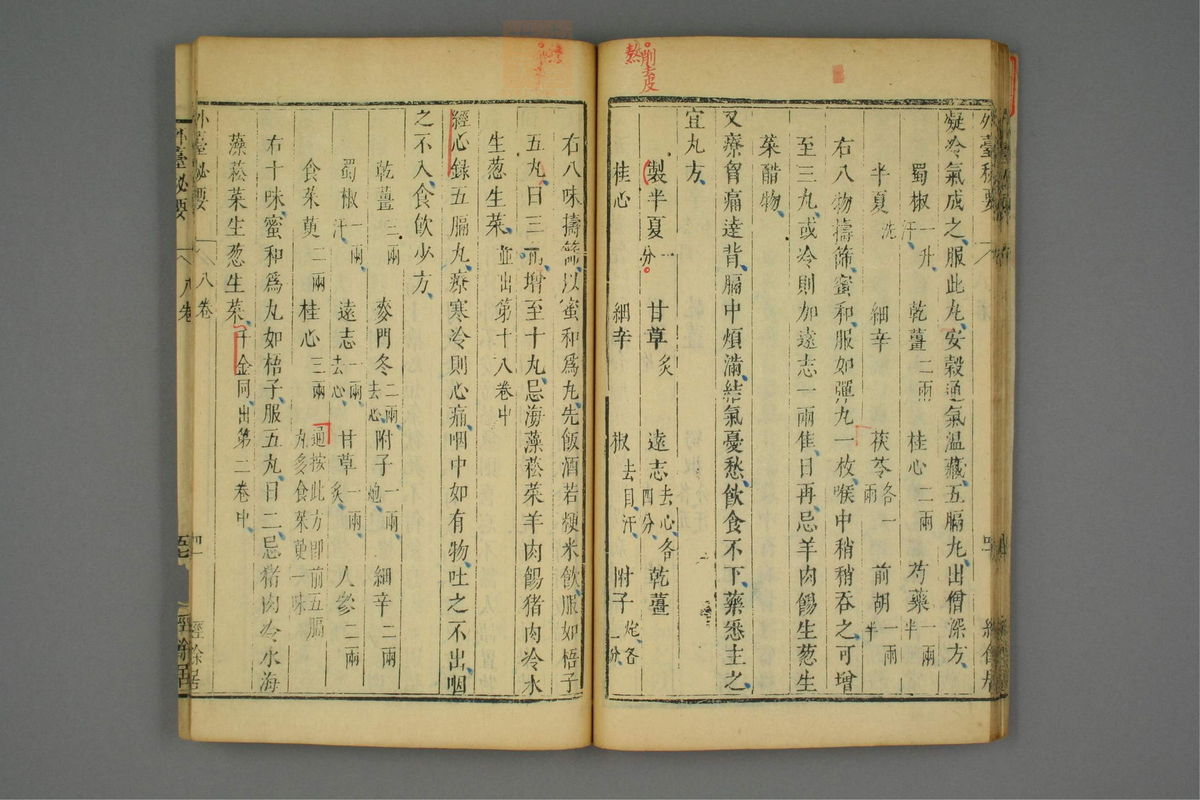 削去皮
熬
外臺秘要
凝冷氣成之服此丸安穀通氣溫臟五膈丸出僧深方
蜀椒一升汗 乾薑二兩 桂心二兩 芍藥一兩半
半夏洗 細辛 茯苓各一兩 前胡一兩半
右八物擣篩蜜和服如彈丸一枚喉中稍稍吞之可增
至三丸或冷則加遠志一兩隹日再忌羊肉餳生葱生
菜醋物
又療胷痛達背膈中煩滿結氣憂愁飲食不下藥悉主之
宜丸方
製半夏一分 甘草炙 遠志去心各四分 乾薑
桂心 細辛 椒去目汗 附子炮各一分
右八味擣篩以蜜和爲丸先飯酒若粳米飲服如梧子
五丸日三而增至十丸忌海藻菘菜羊肉餳猪肉冷水
生葱生菜並出第十八卷中
經心録五膈丸療寒冷則心痛咽中如有物吐之不出咽
之不入食飲少方
乾薑三兩 麥門冬二兩去心 附子一兩炮 細辛二兩
蜀椒一兩汗 遠志一兩去心 甘草一兩炙 人參二兩
食茱萸二兩 桂心三兩 按此方即前五膈丸多食茱萸一味
右十味蜜和爲丸如梧子服五丸日二忌猪肉冷水海
藻菘菜生葱生菜千金同出第二卷中
外臺秘要 八卷 經餘居
外臺秘要 八卷 經餘居